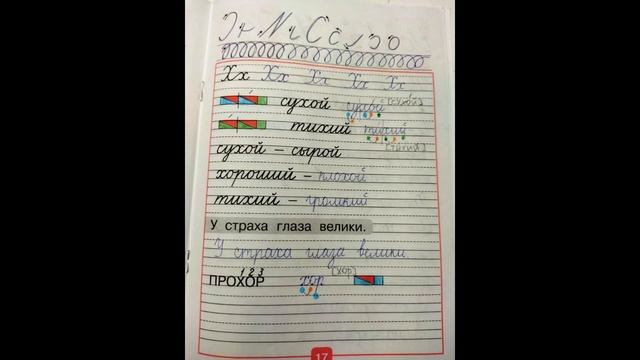 Хх Хх Хх Хх Хх
сухой сухой [сухой]
тихий тихий [тихий]
сухой – сырой
хороший – плохой
тихий – громкий
У страха глаза велики.
У страха глаза велики.
1 2 3
ПРОХОР хор [хор]
17